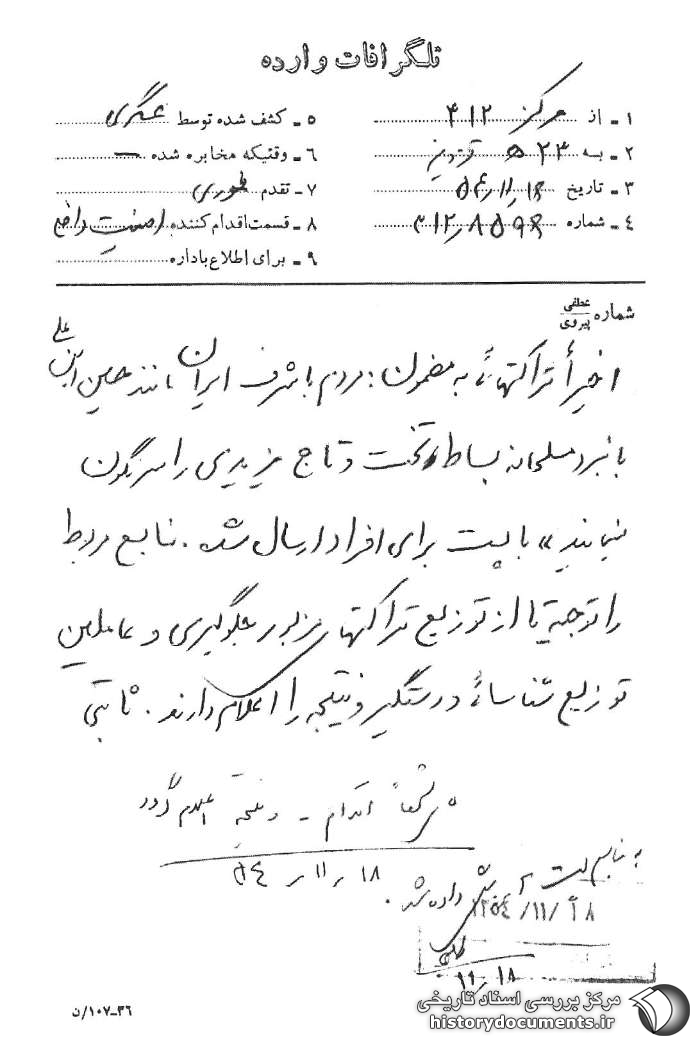 تلگرافات وارده
۱ - از مرکز ۴۱۲
۲ - به ۵۲۳ قزوین
۳ - تاریخ ۵۴/۱۱/۱۸
۴ - شماره ۳۱۲/۸۵۹۴
۵ - کشف شده توسط عسگری
۶ - وقتیکه مخابره شده —
۷ - تقدم فوری
۸ - قسمت اقدام کننده امنیت داخلی
۹ - برای اطلاع باداره
شماره عطفی پیروی
اخیراً تراکتهائی به مضمون: مردم با شرف ایران مانند حسین ابن علی
با نبرد مسلحانه بساط تخت و تاج یزیدی را سرنگون
نمایند» با پست برای افراد ارسال شده. منابع مربوط
را توجیه تا از توزیع تراکتهای مزبور جلوگیری و عاملین
توزیع شناسائی، دستگیر و نتیجه را اعلام دارند. ثابتی
سریعاً اقدام - و نتیجه اعلام گردد
۵۴/۱۱/۱۸
به منابع پست آموزش داده شد.
۱۳۵۴/۱۱/۱۸
۱۱/۱۸
۳۶-۱۰۷/ن
مرکز بررسی اسناد تاریخی
historydocuments.ir